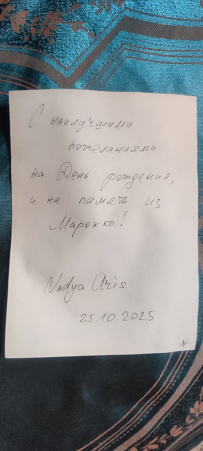 С наилучшими
пожеланиями
на День рождения,
и на память из
Марокко!
Nadya Aris
25.10.2025